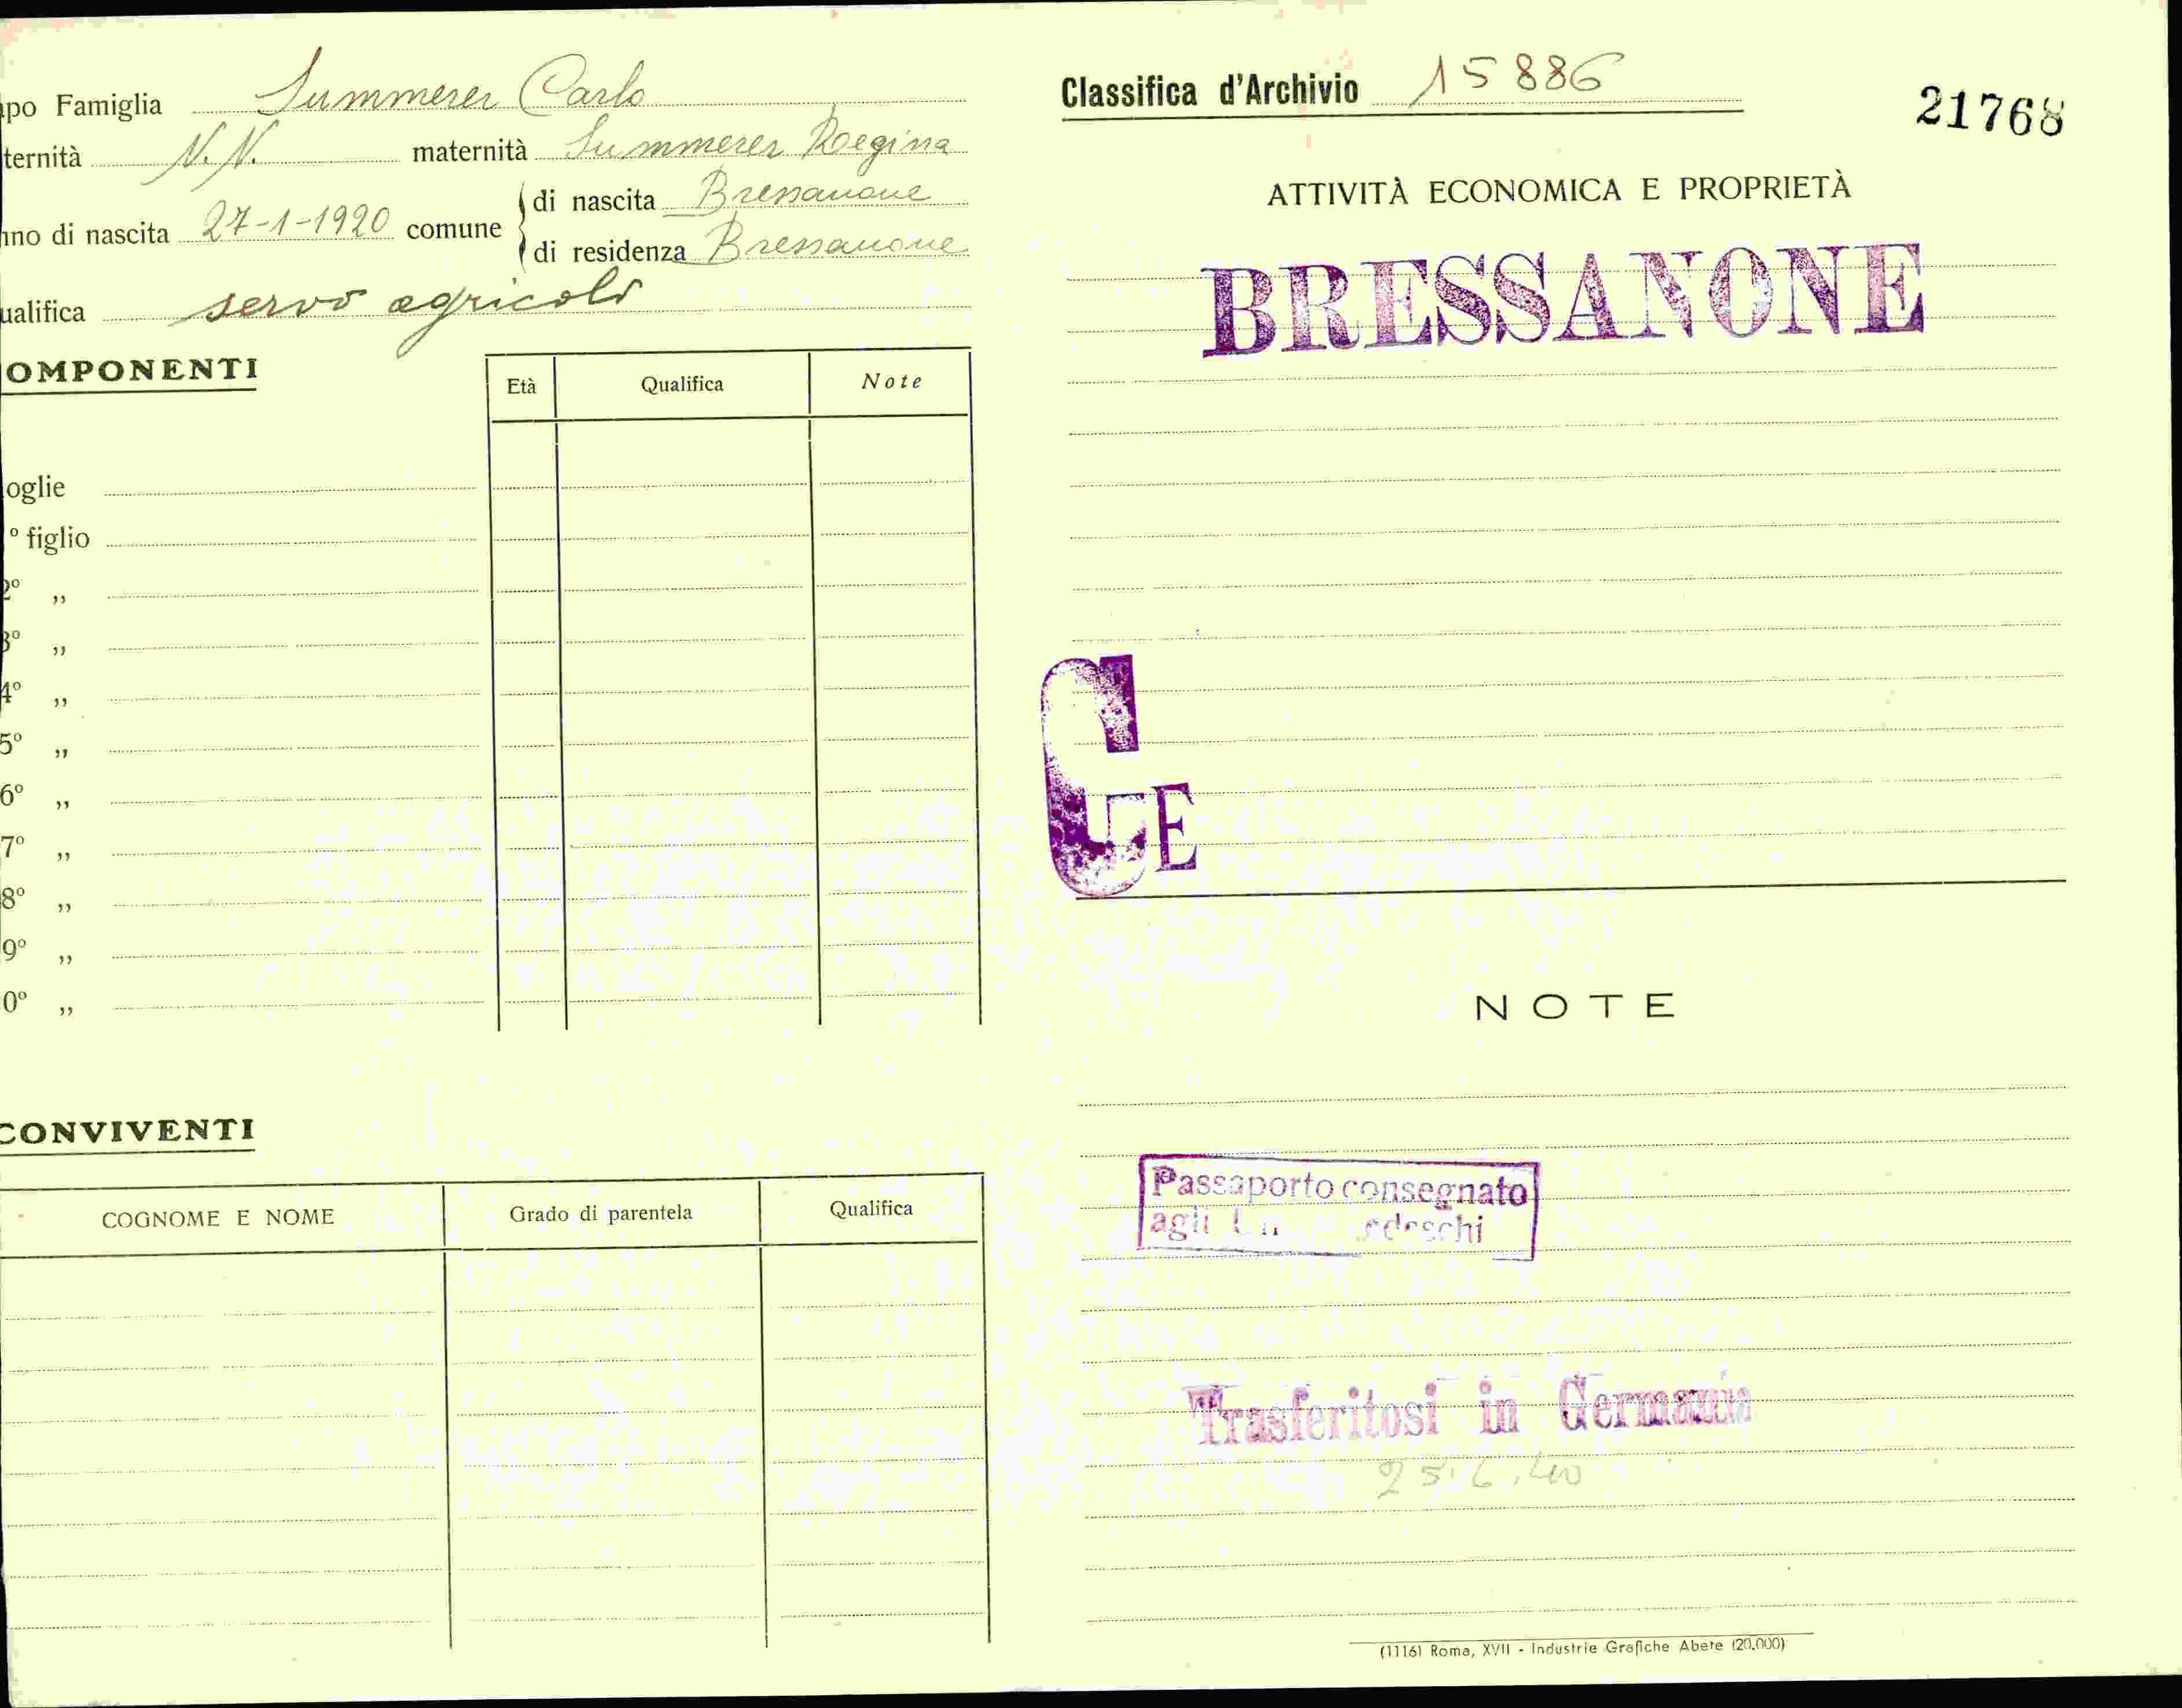 po Famiglia Summerer Carlo
ternità N. N. maternità Summerer Regina
nno di nascita 27-1-1920 comune di nascita Bressanone
di residenza Bressanone
ualifica servo agricolo
OMPONENTI
Età Qualifica Note
oglie
º figlio
2º „
3º „
4º „
5º „
6º „
7º „
8º „
9º „
0º „
CONVIVENTI
COGNOME E NOME Grado di parentela Qualifica
Classifica d'Archivio 15886
21768
ATTIVITÀ ECONOMICA E PROPRIETÀ
BRESSANONE
C E
NOTE
Passaporto consegnato
agli
Trasferitosi in Germania
25.6.40
(1116) Roma, XVII - Industrie Grafiche Abete (20.000)